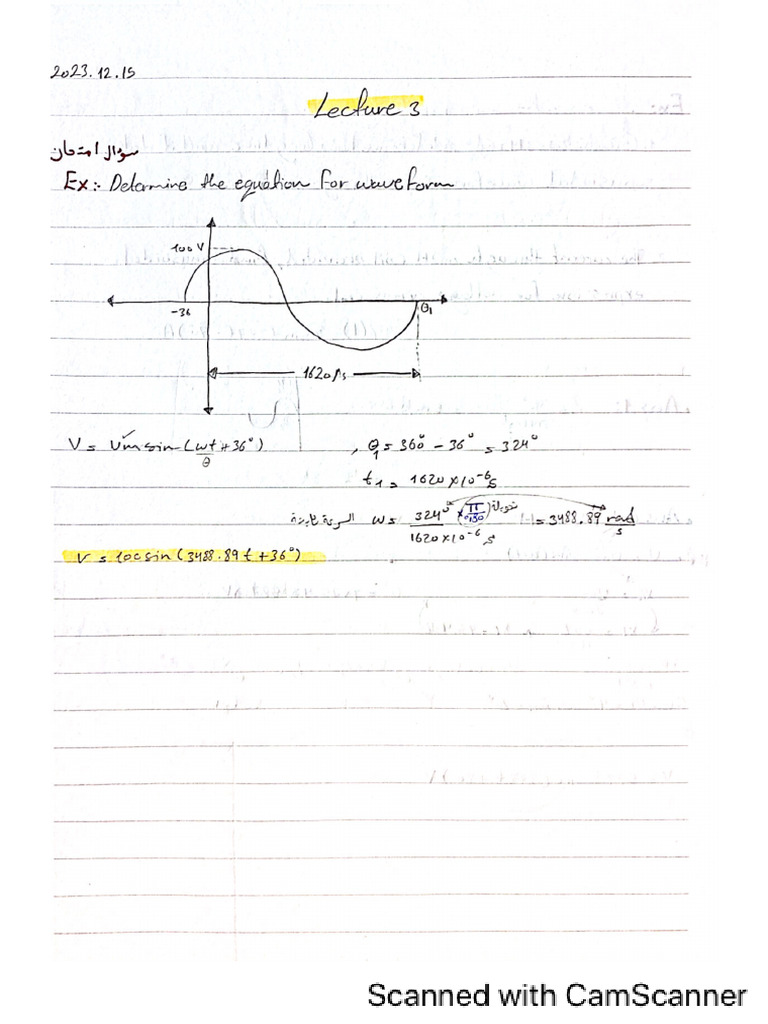 2023.12.15
Lecture 3
سؤال امتحان
Ex:- Detarmine the equation for waveform
100 V
-36
θ1
1620 μs
V = Vm sin (wt + 36°)
θ
, θ1 = 360° - 36° = 324°
t1 = 1620 x 10-6 s
السرعة ثابتة w = 324° x π/180 تحويلة = 3488.89 rad/s
1620 x 10-6 s
V = 100 sin (3488.89 t + 36°)
Scanned with CamScanner